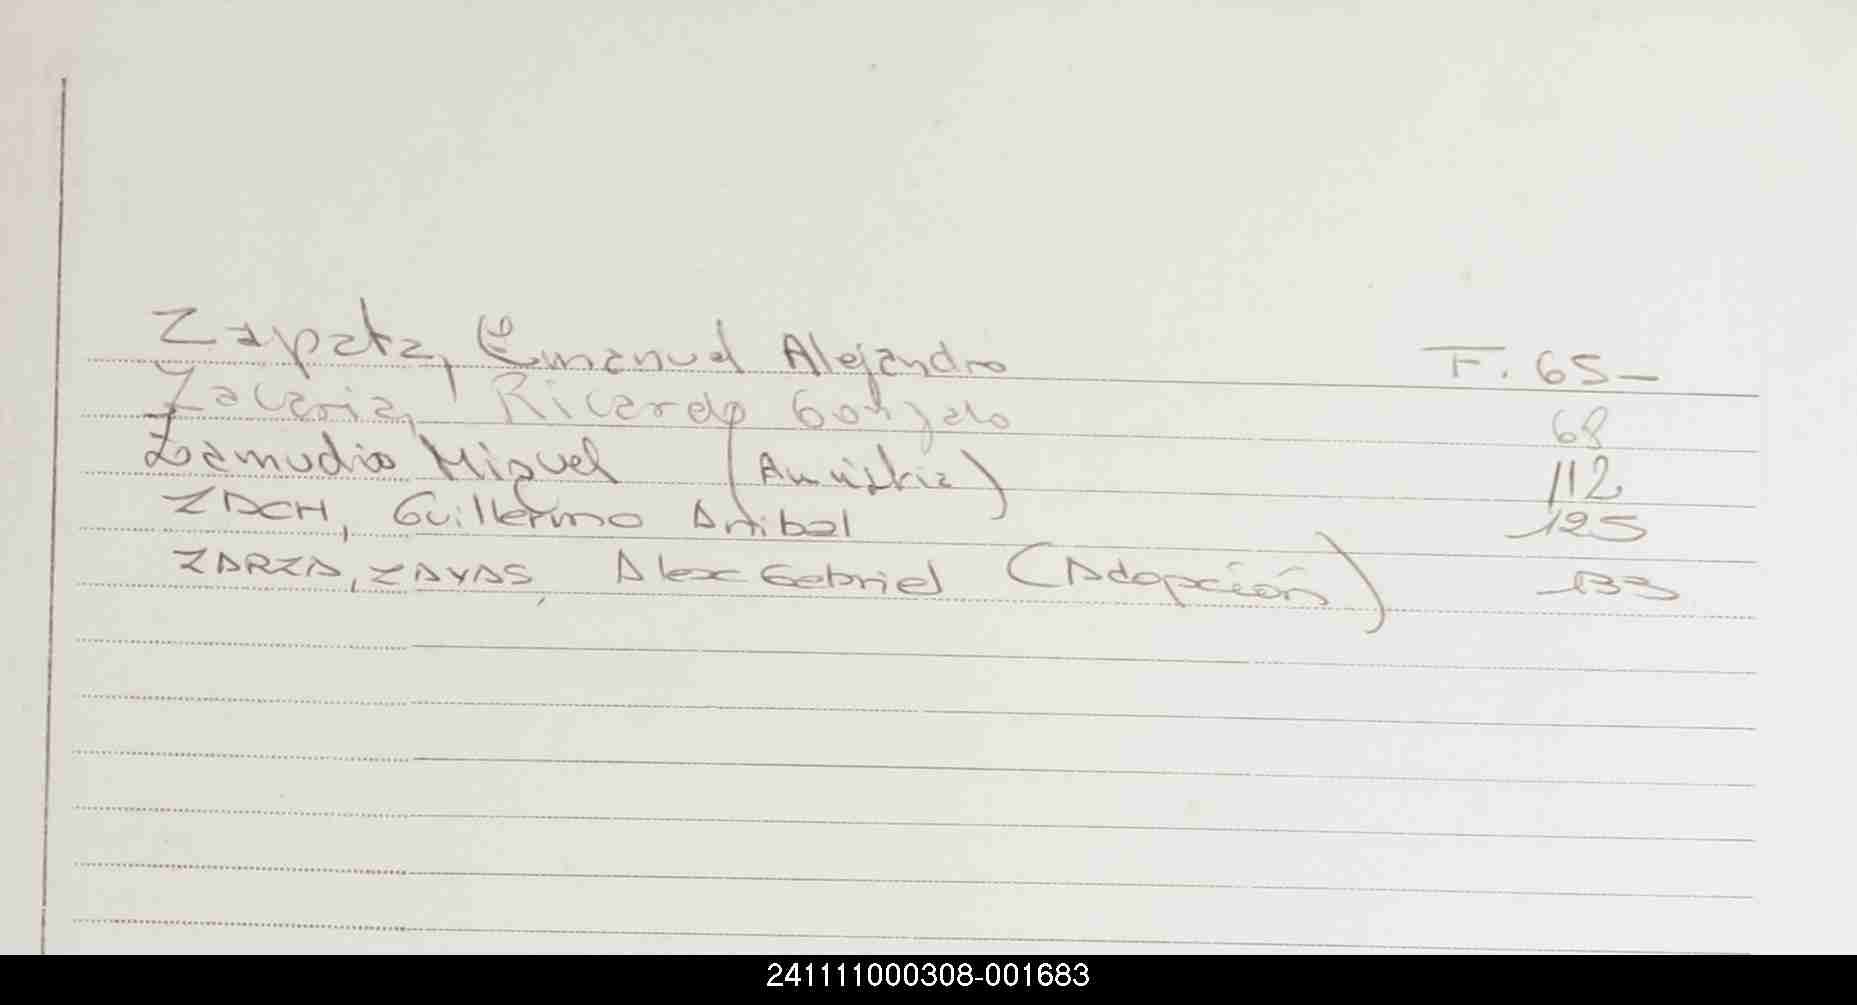 Zapata, Emanuel Alejandro F. 65-
Zacaria, Ricardo Gonzalo 68
Zamudio Miguel (Amnistia) 112
ZACH, Guillermo Anibal 125
ZARZA, ZAYAS, Alex Gabriel (Adopción) 133
241111000308-001683